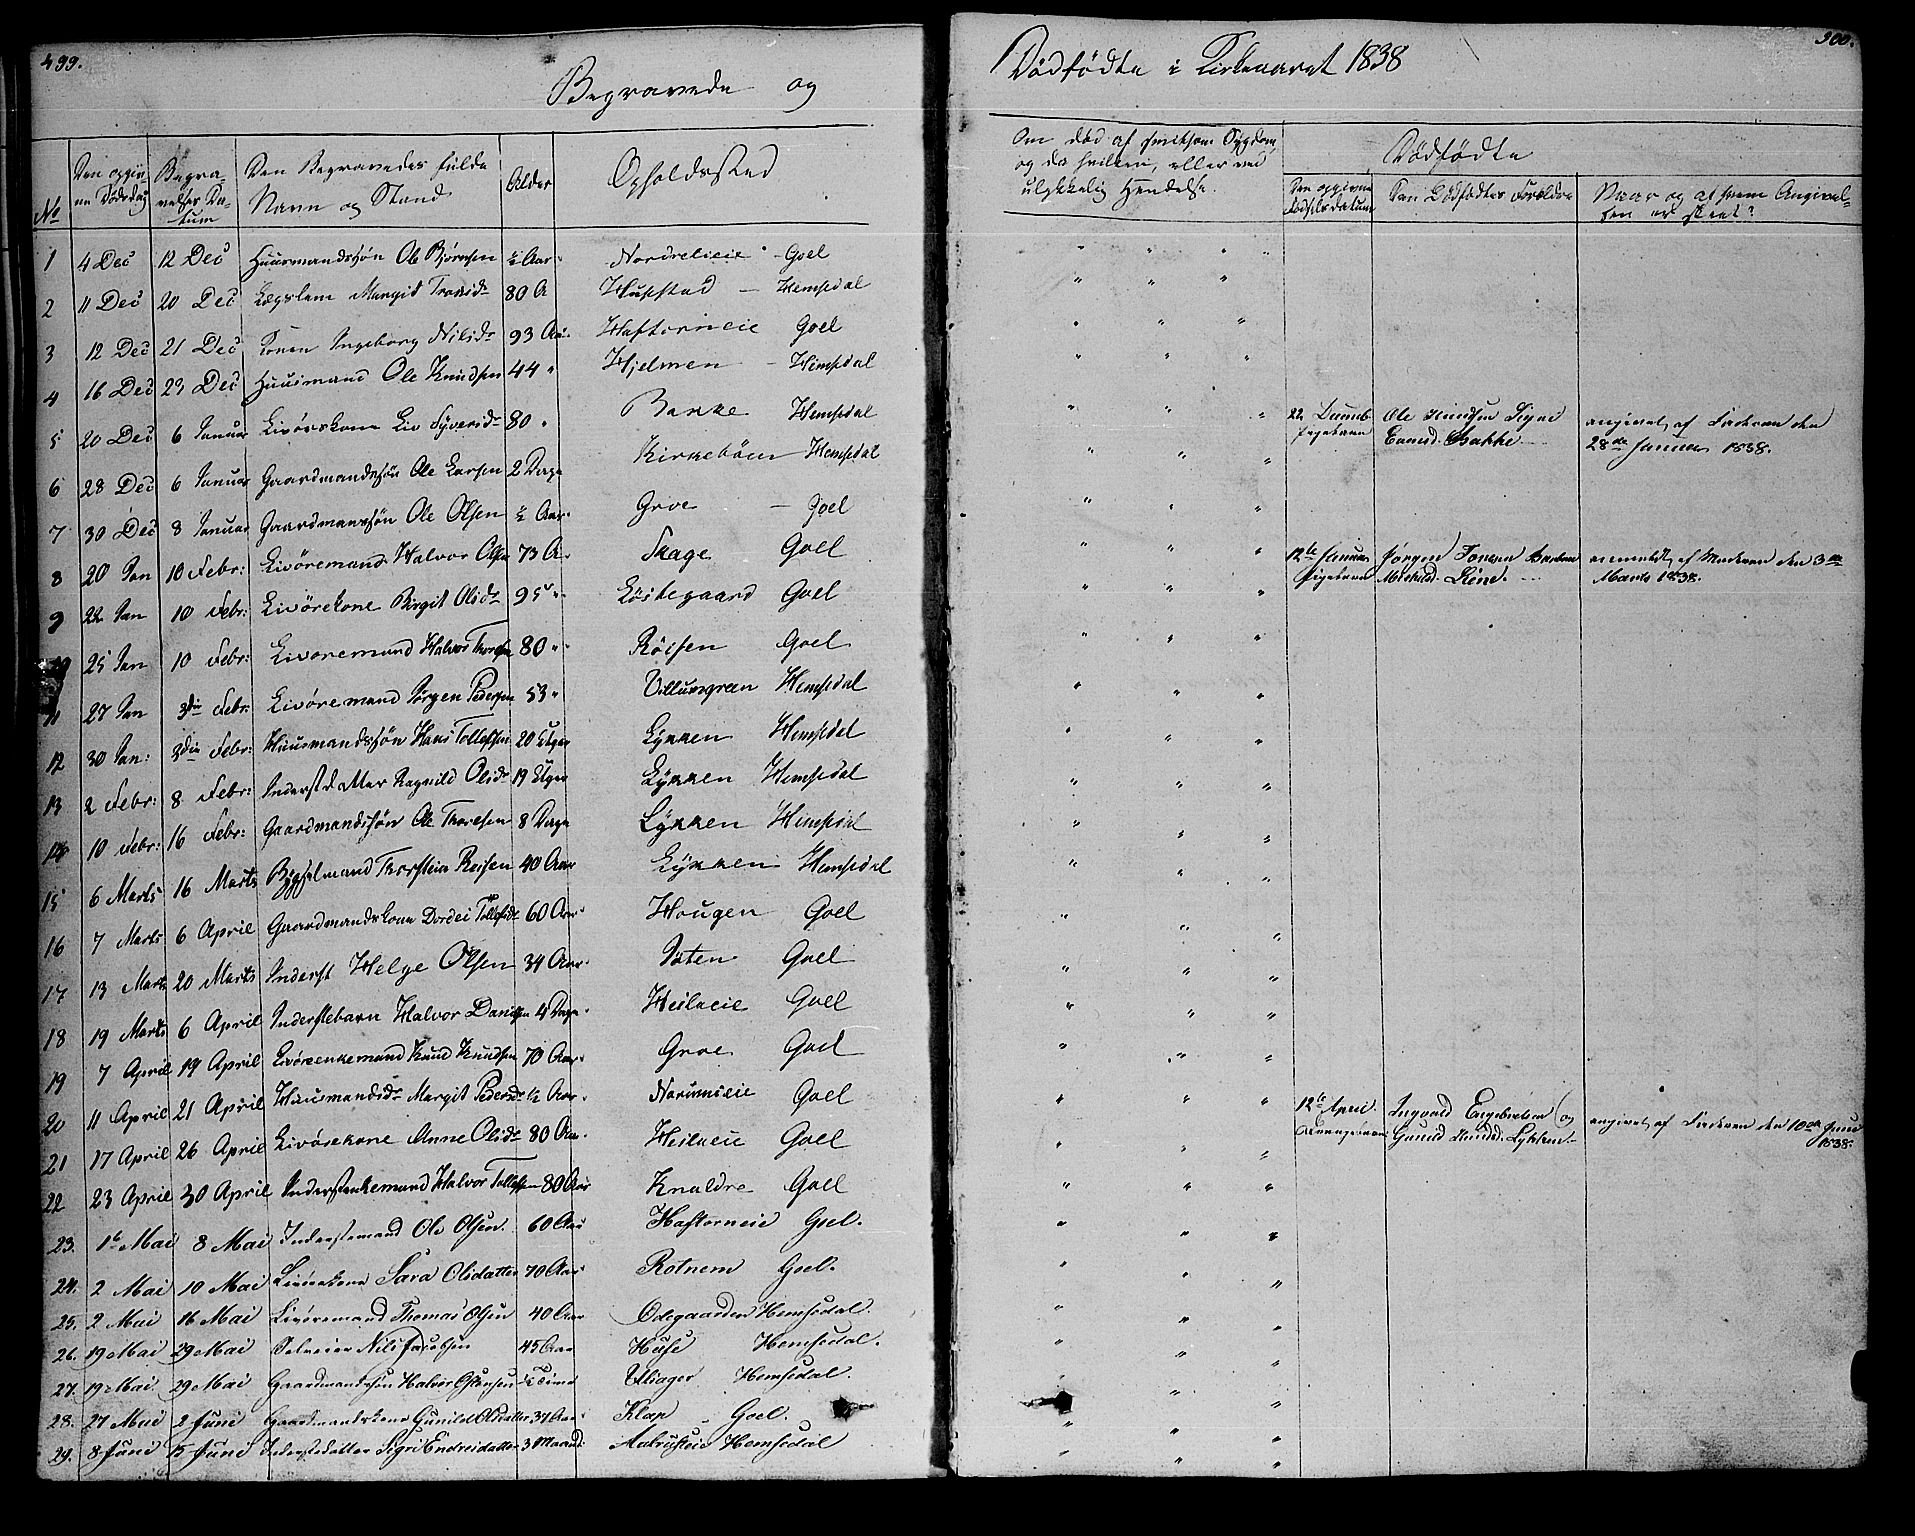 499.
Begravede og
No
Den opgiv-
ne Dödsdag
Begra-
velses Da-
tum
Den Begravedes fulde
Navn og Stand
Alder
Opholdssted
1 4 Dec 12 Dec Huusmandssøn Ole Bjørnsen ½ Aar Nordrelieeie - Goel
2 11 Dec 20 Dec Lægslem Margit 80 A - Hemsedal
3 12 Dec 21 Dec Konen Ingeborg Nilsdr 93 Aar Haftorneie Goel
4 16 Dec 23 Dec Huusmand Ole Knudsen 44 " Hjelmen - Hemsedal
5 20 Dec 6 Januar Livörskone Liv Syversdr 80 " Bakke Hemsedal
6 28 Dec 6 Januar Gaardmandssön Ole Larsen 2 Dage Kirkeböen Hemsedal
7 30 Dec 8 Januar Gaardmanssön Ole Olsen ½ Aar Groe - Goel
8 20 Jan 10 Febr: Livöremand Halvor Olsen 73 A Skage Goel
9 22 Jan 10 Febr: Livörekone Birgit Olsdr 95 " Löstegaard Goel
10 25 Jan 10 Febr: Livöremand Halvor Thoresen 80 " Röisen Goel
11 27 Jan 3die Febr: Livöremand Jörgen Pedersen 53 " Ulsgreen Hemsedal
12 30 Jan: 3die Febr: Huusmandssön Hans Tollefsen 20 Uger Lykken Hemsedal
13 2 Febr: 8 Febr: Inderst datter Ragnild Olsdr 19 Uger Lykken Hemsedal
14 10 Febr: 16 Febr: Gaardmandssön Ole Thoresen 8 Dage Lykken Hemsedal
15 6 Marts 16 Marts Bygselmand Thorstein Roisen 40 Aar Lykken Hemsedal
16 7 Marts 6 April Gaardmandskone Dordei Tollefsdr 60 Aar Hougen Goel
17 13 Marts 20 Marts Inderst Helge Olsen 34 Aar Goel
18 19 Marts 6 April Inderstebarn Halvor 4 Dage Heslaeie Goel
19 7 April 19 April Livörenkemand Knud Knudsen 70 Aar Groe Goel
20 11 April 21 April Huusmandsdr Margit Pedersdr ½ Aar Goel
21 17 April 26 April Livörekone Anne Olsdr 80 Aar Heslaeie Goel
22 23 April 30 April Inderstenkemand Halvor Tollefsen 80 Aar Knaldre Goel
23. 1te Mai 8 Mai Inderstemand Ole Olsen 60 Aar Haftorneie Goel.
24. 2 Mai 10 Mai Livörekone Sara Olsdatter 70 Aar Rotnem Goel.
25. 2 Mai 16 Mai Livöremand Thomas Olsen 40 Aar Ödegaarden Hemsedal.
26. 19 Mai 29 Mai Selveier Nils Jacobsen 45 Aar Huse Hemsedal.
27. 19 Mai 29 Mai Gaardmandssön Halvor Ostensen ½ Time Ulsager Hemsedal.
28. 27 Mai 2 Juni Gaardmandskone Gunild Olsdatter 37 Aar Klop Goel.
29. 8 Juni 15 Juni Inderstedatter Sigri Endresdatter 3 Maaned Hemsedal
Dödfödte i Kirkeaaret 1838
500.
Om död af smitsom Sygdom,
og da hvilken, eller ved
ulykkelig Hendelse.
Dödfödte
Den opgivne
Födselsdatum
Den Dödfödtes Forældre
Naar og af hvem Angivel-
sen er skeet?
22 Decemb
Pigebarn
Ole Knudsen Signe
Bakke
angivet af Faderen den
28de Januar 1838.
12te Januar
Pigebarn
Jörgen
anmeldt af Moderen den 3de
Marts 1838.
12te April.
Drengebarn
Ingvald Engebretsen og
Gunild Lykken
angivet af Faderen den 10de Juni
1838.